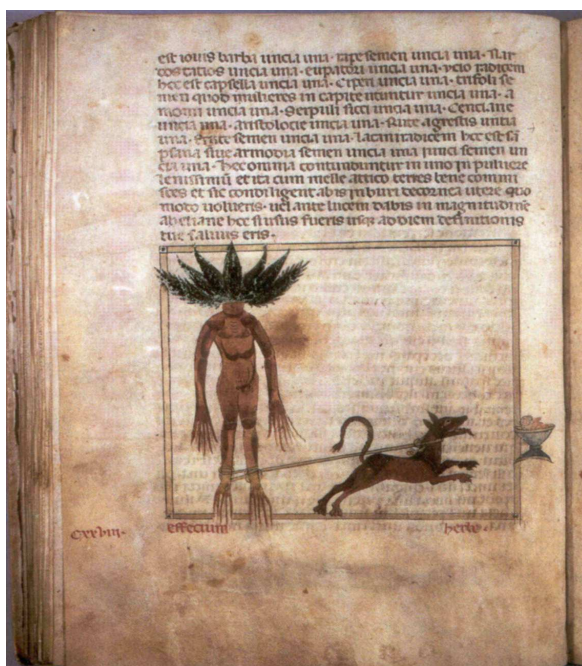 est iouis barba uncia una. rape semen uncia una. Nar
costatios uncia una. eupatori uncia una. ycio radicem
hec est capsella uncia una. Ciperi uncia una. trifoli se
men quod mulieres in capite utuntur uncia una. a
momi uncia una. Serpilli sicci uncia una. Genciane
uncia una. aristolocie uncia una. Rute agrestis untia
una. semen uncia una. radicem hec est
siue armoria semen uncia una semen un
cia una. hec omnia contunduntur in uno in puluere
leuissimū et ita cum melle attico teries bene commi
sces et sic condi abis utere quo
modo uolueris. uel ante lucem dabis in magnitudine
hec si usus fueris usq; ad diem
tue saluus eris.
effectum herbe.